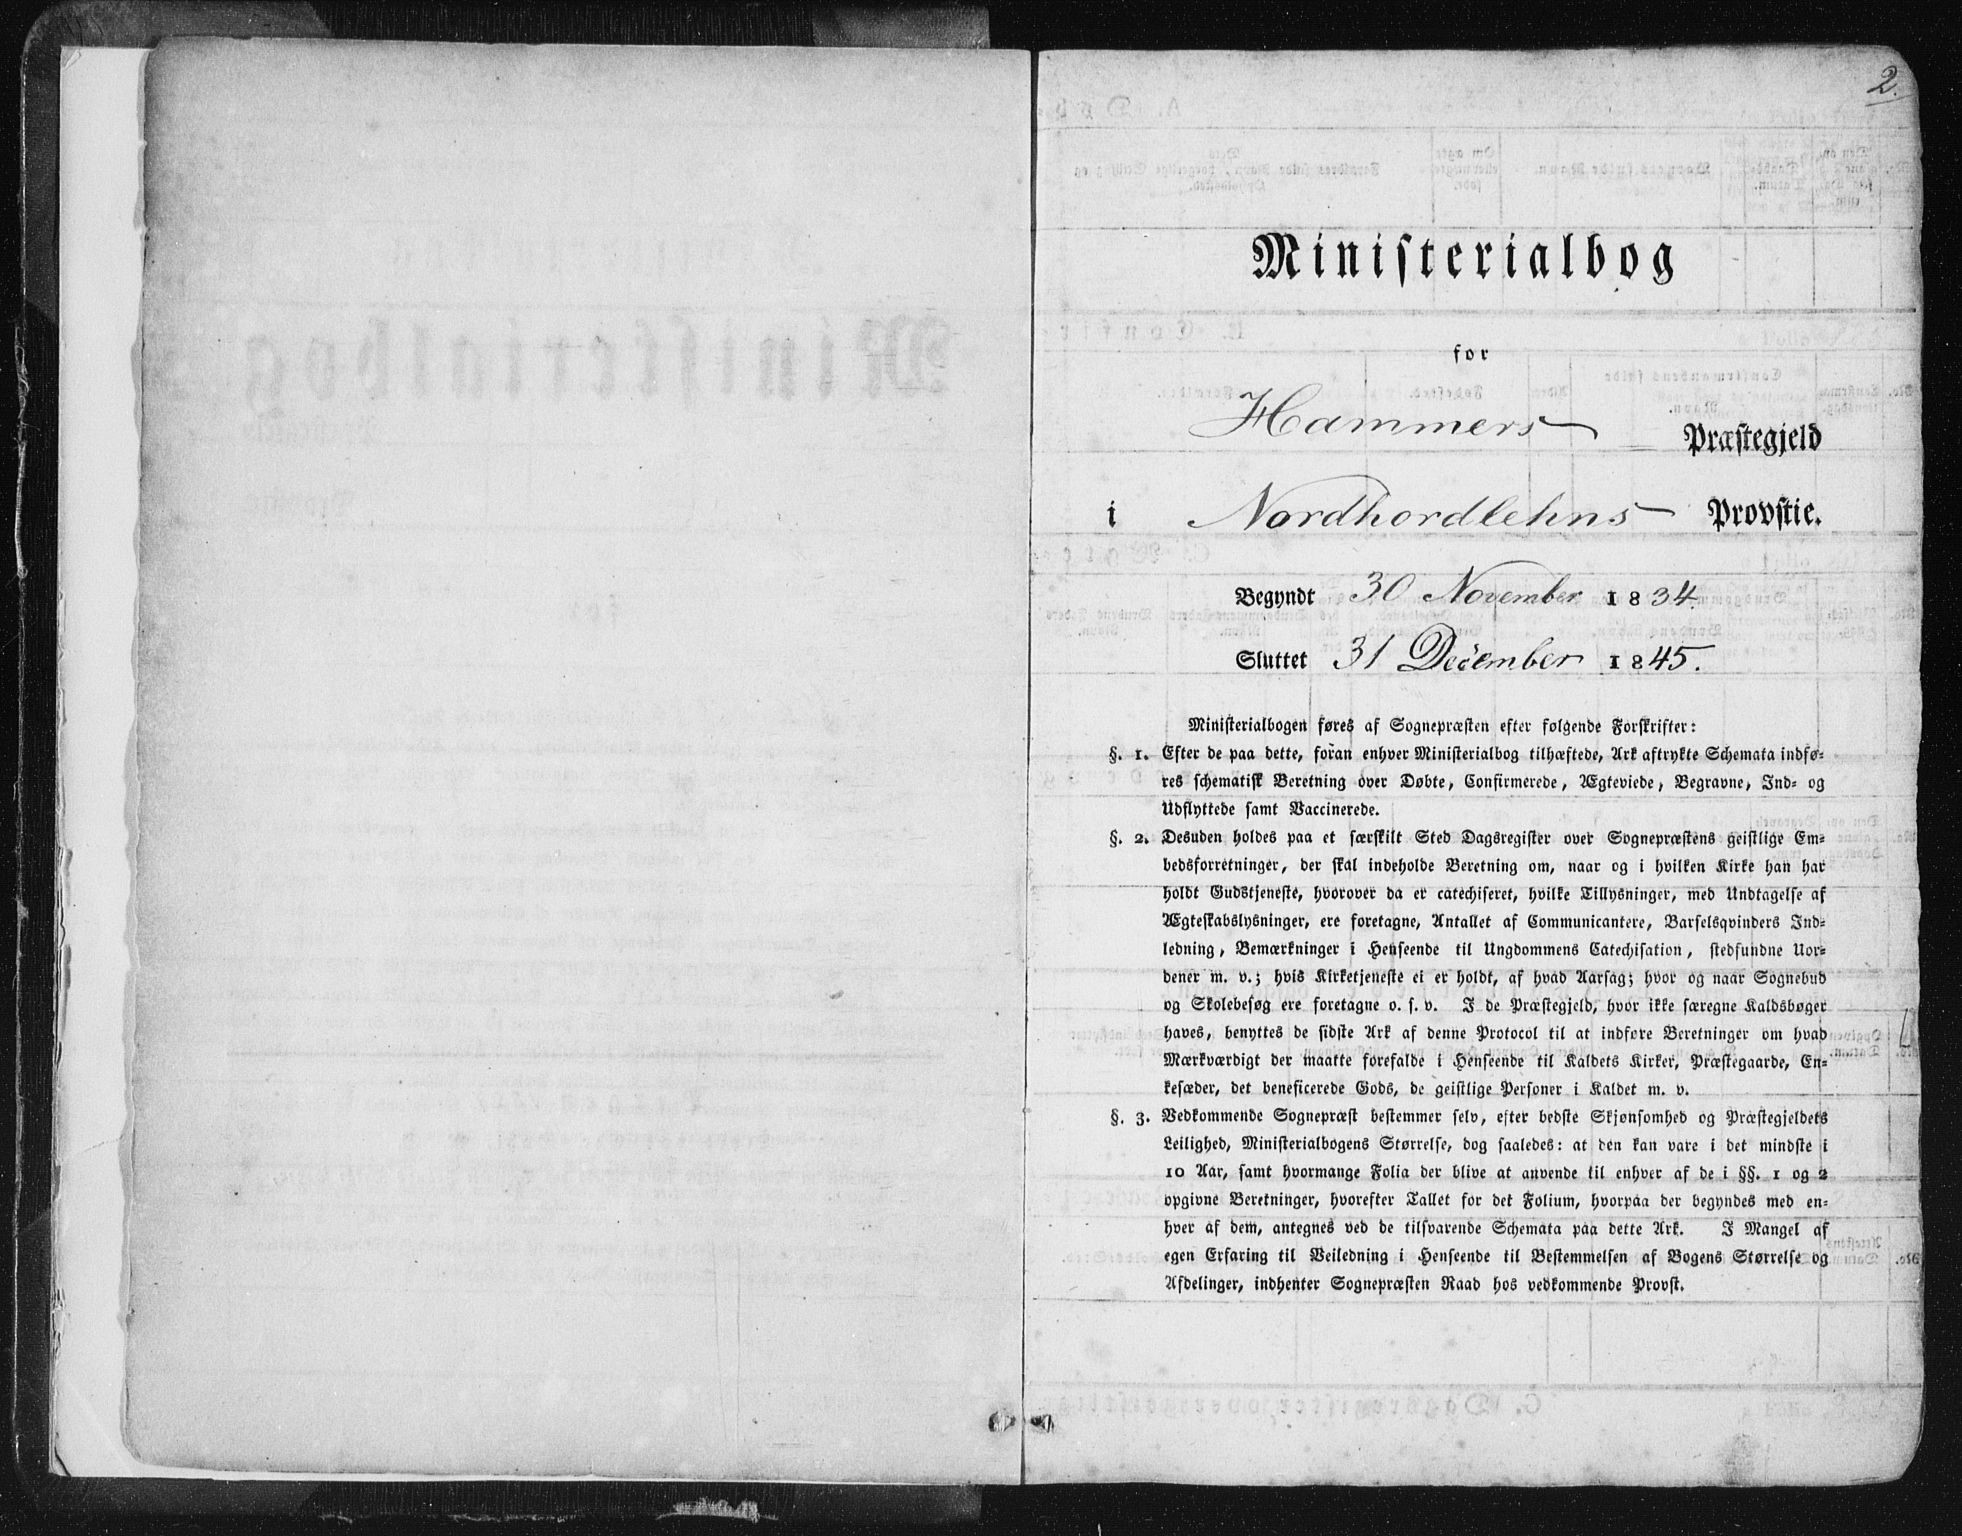 2.
Ministerialbog
for
Hammers Præstegjeld
i Nordhordlehns Provstie.
Begyndt 30 November 1834.
Sluttet 31 December 1845.
Ministerialbogen føres af Sognepræsten efter følgende Forskrifter:
§. 1. Efter de paa dette, foran enhver Ministerialbog tilhæftede, Ark aftrykte Schemata indfø-
res schematisk Beretning over Døbte, Confirmerede, Ægteviede, Begravne, Ind- og
Udflyttede samt Vaccinerede.
§. 2. Desuden holdes paa et særskilt Sted Dagsregister over Sognepræstens geistlige Em-
bedsforretninger, der skal indeholde Beretning om, naar og i hvilken Kirke han har
holdt Gudstjeneste, hvorover da er catechiseret, hvilke Tillysninger, med Undtagelse af
Ægteskabslysninger, ere foretagne, Antallet af Communicantere, Barselsqvinders Ind-
ledning, Bemærkninger i Henseende til Ungdommens Catechisation, stedfundne Uor-
dener m. v.; hvis Kirketjeneste ei er holdt, af hvad Aarsag; hvor og naar Sognebud
og Skolebesøg ere foretagne o. s. v. I de Præstegjeld, hvor ikke særegne Kaldsbøger
haves, benyttes de sidste Ark af denne Protocol til at indføre Beretninger om hvad
Mærkværdigt der maatte forefalde i Henseende til Kaldets Kirker, Præstegaarde, En-
kesæder, det beneficerede Gods, de geistlige Personer i Kaldet m. v.
§. 3. Vedkommende Sognepræst bestemmer selv, efter bedste Skjønsomhed og Præstegjeldets
Leilighed, Ministerialbogens Størrelse, dog saaledes: at den kan vare i det mindste i
10 Aar, samt hvormange Folia der blive at anvende til enhver af de i §§. 1 og 2
opgivne Beretninger, hvorefter Tallet for det Folium, hvorpaa der begyndes med en-
hver af dem, antegnes ved de tilsvarende Schemata paa dette Ark. I Mangel af
egen Erfaring til Veiledning i Henseende til Bestemmelsen af Bogens Størrelse og
Afdelinger, indhenter Sognepræsten Raad hos vedkommende Provst.